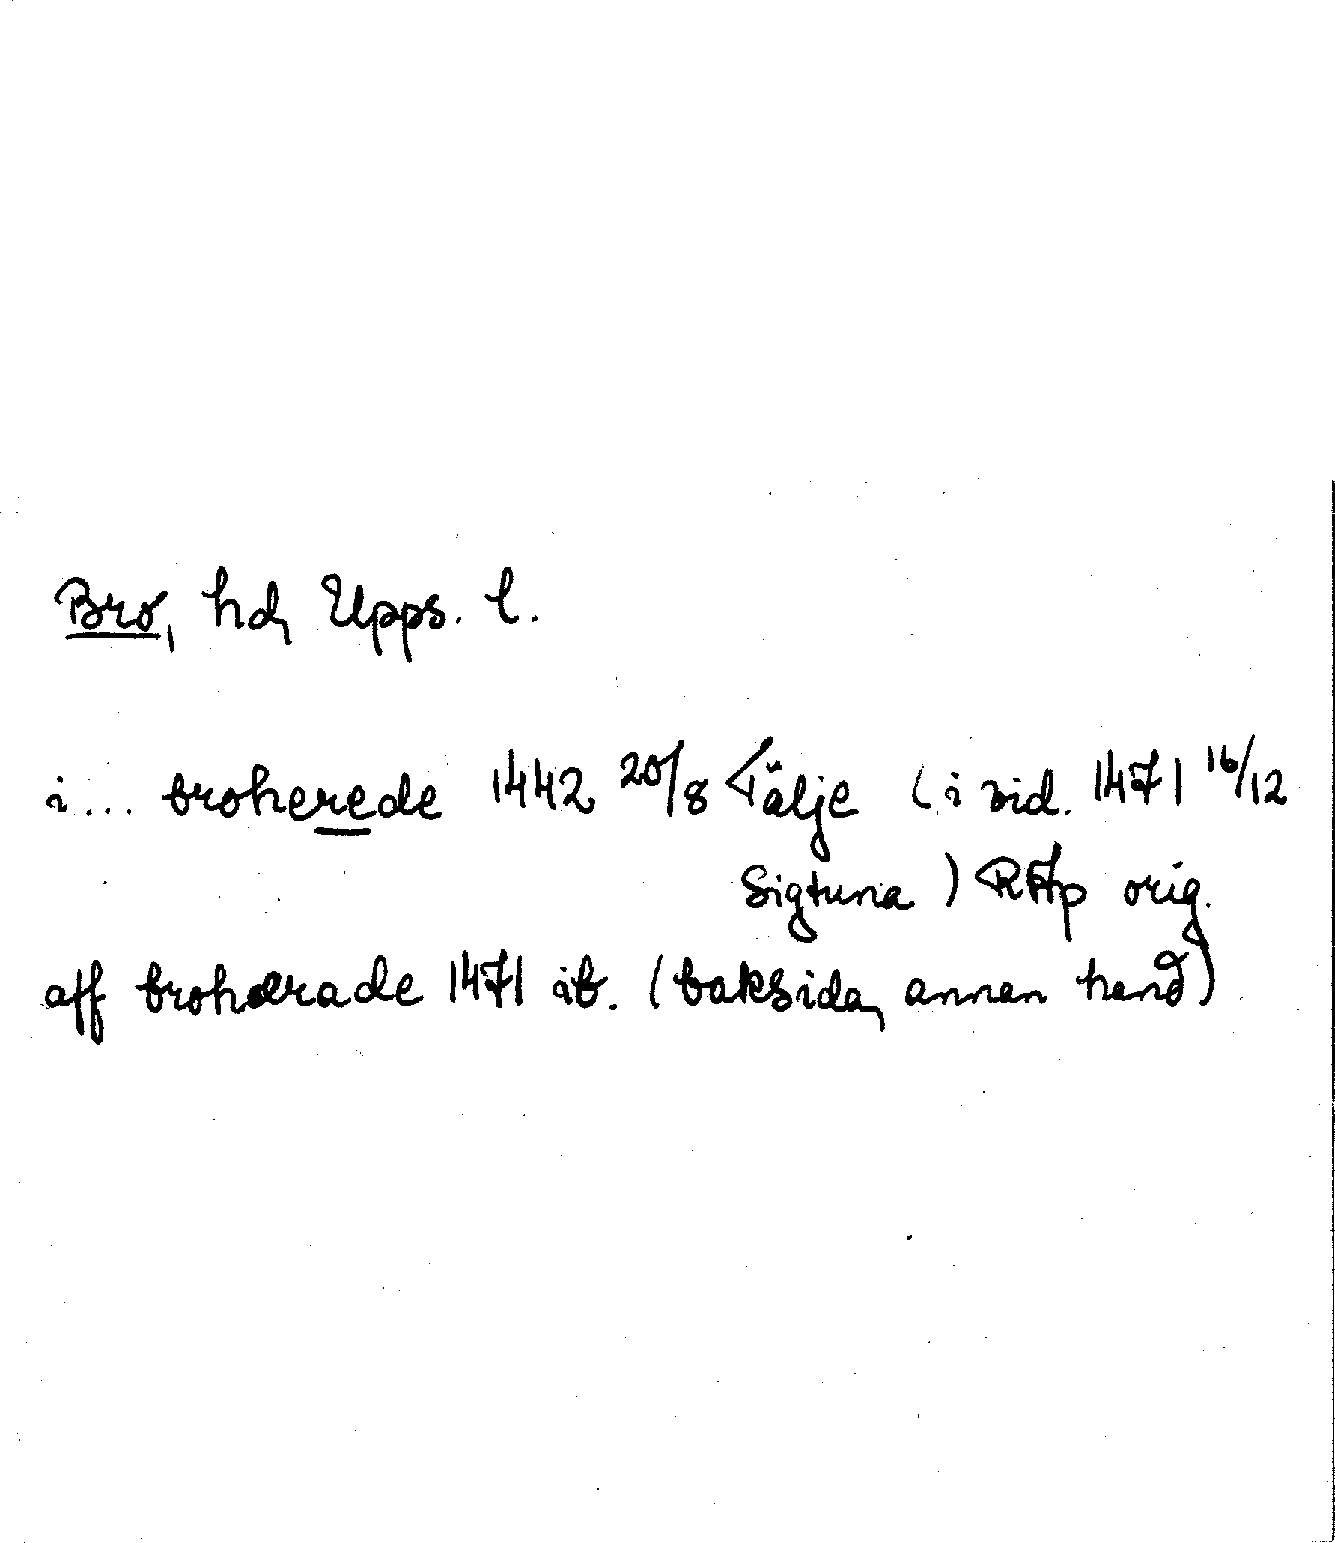 Bro, hd, Upps. l.
i... broherede 1442 20/8 Tälje (i vid. 1471 16/12
Sigtuna) RAp orig.
aff brohærade 1471 ib. (baksida, annan hand)